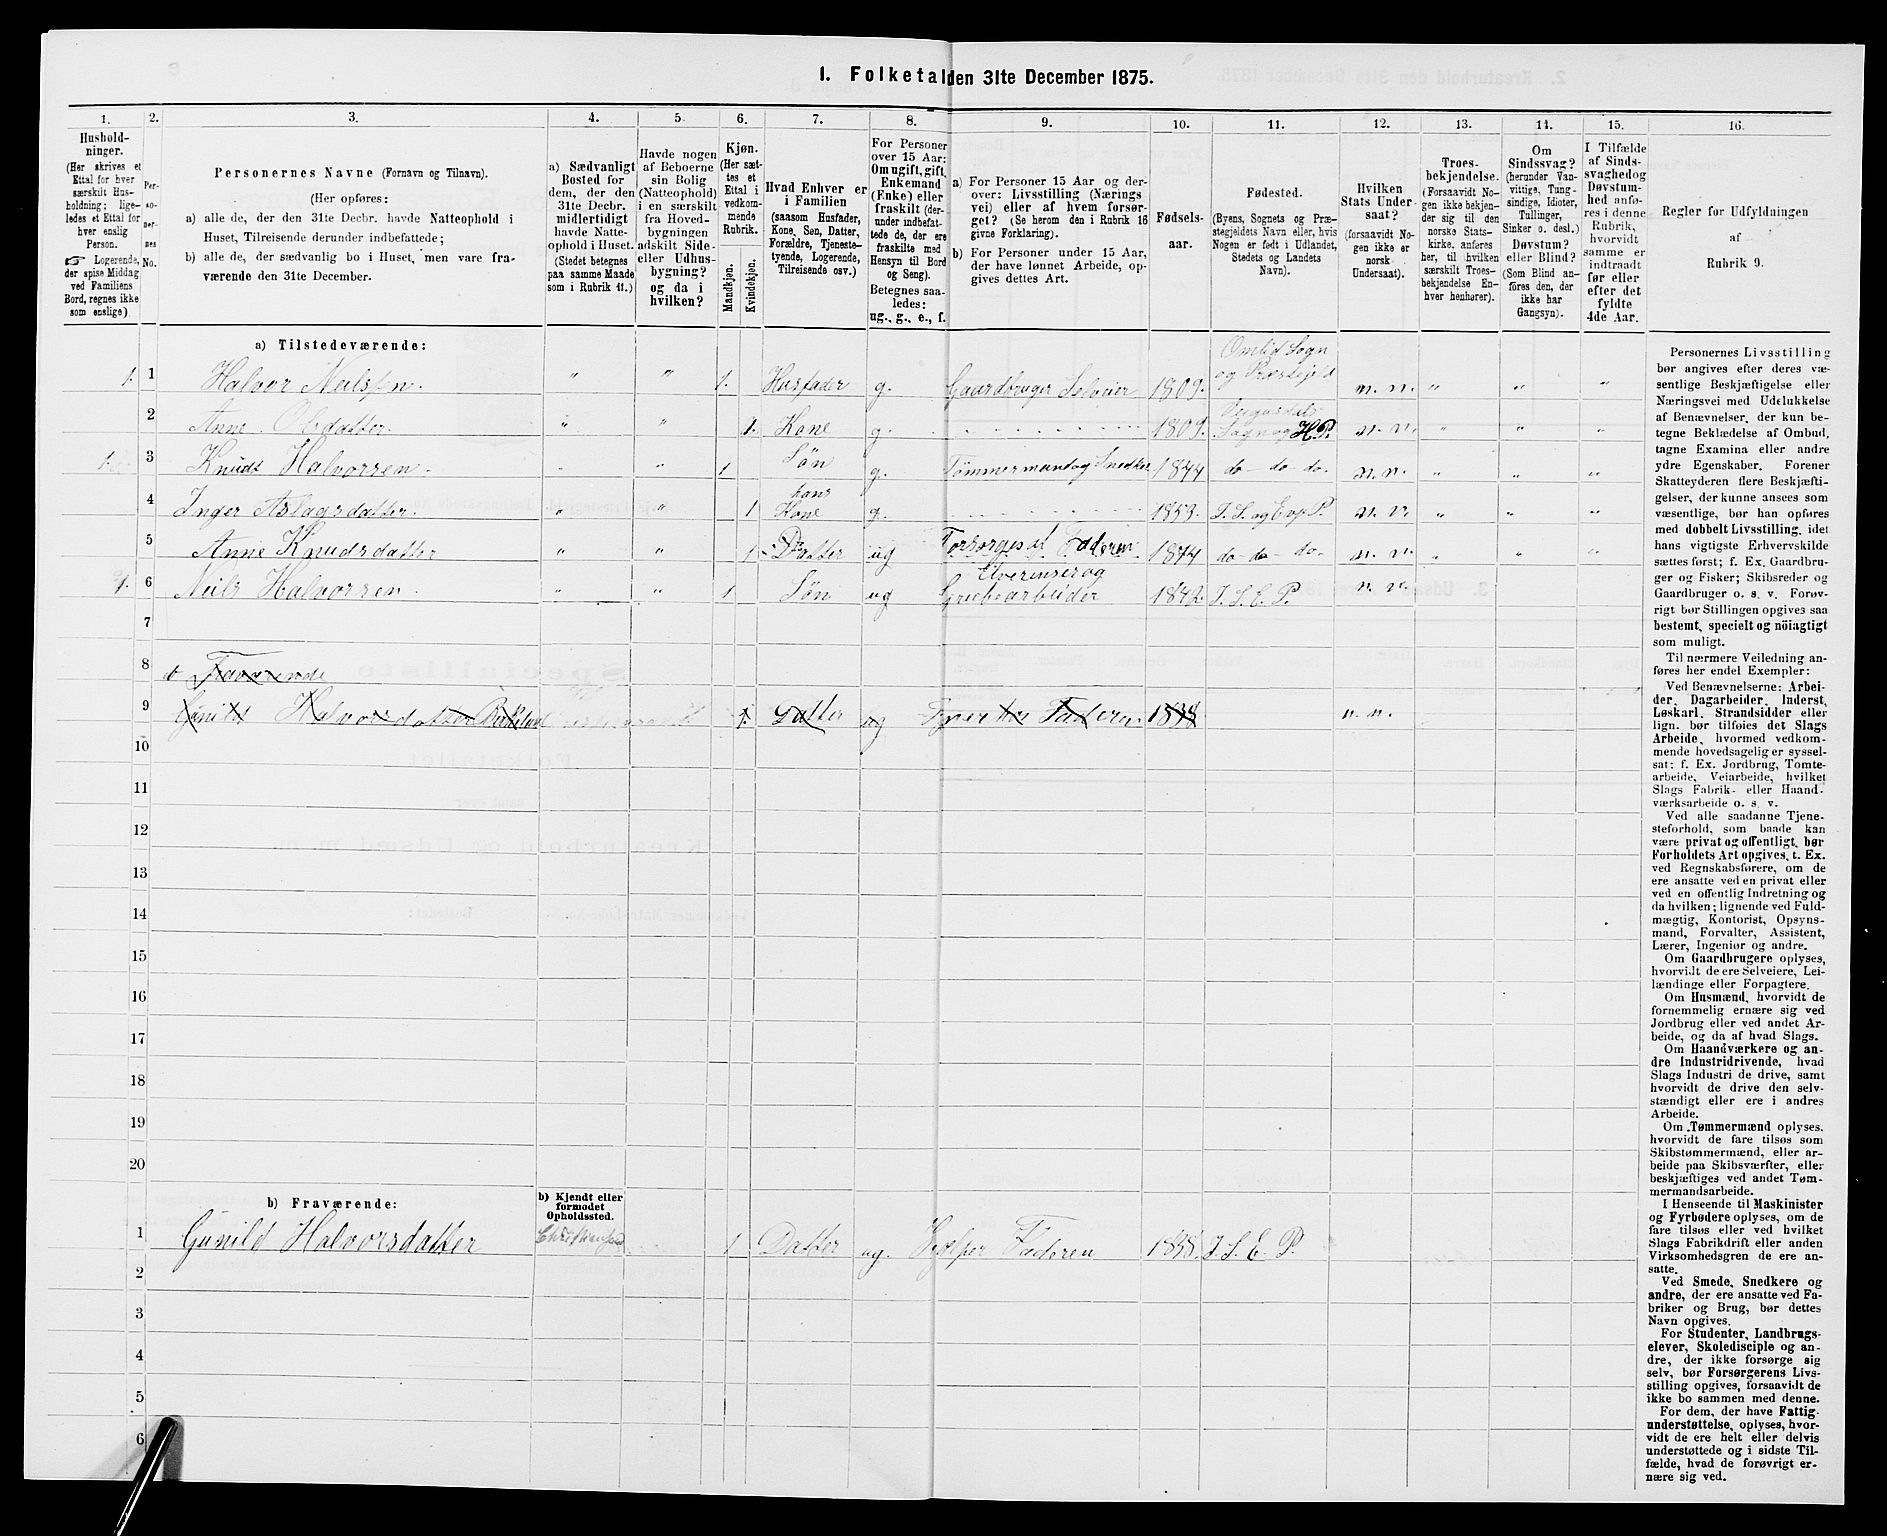 1. Folketal den 31te December 1875.
1.
2.
3.
4.
5.
6.
7.
8.
9.
10.
11.
12.
13.
14.
15.
16.
Hushold-
ninger.
(Her skrives et
Ettal for hver
særskilt Hus-
holdning; lige-
ledes et Ettal for
hver enslig
Person.
☞ Logerende,
der spise Middag
ved Familiens
Bord, regnes ikke
som enslige)
Per-
so-
ner-
nes
No.
Personernes Navne (Fornavn og Tilnavn).
(Her opføres:
a) alle de, der den 31te Decbr. havde Natteophold i
Huset, Tilreisende derunder indbefattede;
b) alle de, der sædvanlig bo i Huset, men vare fra-
værende den 31te Decbr.
a) Sædvanligt
Bosted for
dem, der den
31te Decbr.
midlertidigt
havde Natte-
ophold i Huset.
(Stedet betegnes
paa samme Maade
som i Rubrik 11.)
Havde nogen
af Beboerne
sin Bolig
(Natteophold)
i en særskilt
fra Hoved-
bygningen
adskilt Side-
eller Udhus-
bygning?
og da i
hvilken?
Kjøn.
(Her sæt-
tes et
Ettal i
vedkom-
mende
Rubrik.
Mandkjøn.
Kvindekjøn.
Hvad Enhver er
i Familien
(saasom Husfader,
Kone, Søn, Datter,
Forældre, Tjeneste-
tyende, Logerende,
Tilreisende osv.)
For Personer
over 15 Aar:
Om ugift, gift,
Enkemand
(Enke) eller
fraskilt (der-
under indbefat-
tede de, der ere
fraskilte med
Hensyn til Bord
og Seng).
Betegnes saa-
ledes:
ug., g., e., f.
a) For Personer 15 Aar og der-
over: Livsstilling (Nærings
vei) eller af hvem forsør-
get? (Se herom den i Rubrik 16
givne Forklaring).
b) For Personer under 15 Aar,
der have lønnet Arbeide, op-
gives dettes Art.
Fødsels-
aar.
Fødested.
(Byens, Sognets og Præ-
stegjeldets Navn eller, hvis
Nogen er født i Udlandet,
Stedets og Landets
Navn).
Hvilken
Stats Under
saat?
(forsaavidt No-
gen ikke er
norsk
Undersaat).
Troes-
bekjendelse.
(Forsaavidt No-
gen ikke bekjen-
der sig til den
norske Stats-
kirke, anføres
her, til hvilken
særskilt Troes-
bekjendelse En-
hver henhører).
Om
Sindssvag?
(herunder Van-
vittige, Tung-
sindige, Idioter,
Tullinger,
Sinker o. desl.)
Døvstum?
eller Blind?
(Som Blind an-
føres den, der
ikke har
Gangsyn).
I Tilfælde
af Sinds-
svaghed og
Døvstum-
hed anfø-
res i denne
Rubrik,
hvorvidt
samme er
indtraadt
før eller
efter det
fyldte
4de Aar.
Regler for Udfyldningen
af
Rubrik 9.
a) Tilstedeværende:
1. 1 Halvor Neilssen. " " 1. Husfader g. Gaardbruger Selveier 1809. Omlid Sogn
og Præstejeld n. n. " " "
2 Anne Olsdatter. " " 1. Kone g. 1809. Sogn og H.P. n. n. " " "
1. 3 Knudt Halvorsen. " " 1 Søn g. Tømmermand og Snedker 1844 do- do- do- n. n. " " "
4 Inger Aslagsdatter. " " 1 hans
Kone g. 1853. I. S. og E og P. n. n. " " "
5 Anne Knudsdatter " " 1 Datter ug Forsørges af Faderen 1874 do- do- do- n. n. " " "
1. 6 Neils Halvorsen. " " 1 Søn ug og
1842 I. S. E. P. n. n.
7
8 b Fraværende
9 Gunild Halvorsdatter 1. Datter ug Faderen 1838 n. n.
10
11
12
13
14
15
16
17
18
19
20
b) Fraværende:
b) Kjendt eller
formodet
Opholdssted.
1 Gunild Halvorsdatter 1 Datter ug. Hjelper Faderen 1838. I. S. E. P.
2
3
4
5
6
Personernes Livsstilling
bør angives efter deres væ-
sentlige Beskjæftigelse eller
Næringsvei med Udelukkelse
af Benævnelser, der kun be-
tegne Beklædelse af Ombud,
tagne Examina eller andre
ydre Egenskaber. Forener
Skatteyderen flere Beskjæfti-
gelser, der kunne ansees som
væsentlige, bør han opføres
med dobbelt Livsstilling, idet
hans vigtigste Erhvervskilde
sættes først; f. Ex. Gaardbru-
ger og Fisker; Skibsreder og
Gaardbruger o. s. v. Forøv-
rigt bør Stillingen opgives saa
bestemt, specielt og nöiagtigt
som muligt.
Til nærmere Veiledning an-
føres her endel Exempler:
Ved Benævnelserne: Arbei-
der, Dagarbeider, Inderst,
Løskarl, Strandsidder eller
lign. bør tilføies det Slags
Arbeide, hvormed vedkom-
mende hovedsagelig er syssel-
sat; f. Ex. Jordbrug, Tomte-
arbeide, Veiarbeide, hvilket
Slags Fabrik- eller Haand-
værksarbeide o. s. v.
Ved alle saadanne Tjene-
steforhold, som baade kan
være privat og offentligt, bør
Forholdets Art opgives, t. Ex.
ved Regnskabsførere, om de
ere ansatte ved en privat eller
ved en offentlig Indretning og
da hvilken; lignende ved Fuld-
mægtig, Kontorist, Opsyns-
mand, Forvalter, Assistent,
Lærer, Ingeniør og andre.
Om Gaardbrugere oplyses,
hvorvidt de ere Selveiere, Lei-
lændinge eller Forpagtere.
Om Husmænd, hvorvidt de
fornemmelig ernære sig ved
Jordbrug eller ved andet Ar-
beide, og da af hvad Slags.
Om Haandværkere og an-
dre Industridrivende, hvad
Slags Industri de drive, samt
hvorvidt de drive den selv-
stændigt eller ere i andres
Arbeide.
Om Tømmermænd oplyses,
hvorvidt de fare tilsøs som
Skibstømmermænd, eller ar-
beide paa Skibsværfter, eller
beskjæftiges ved andet Tøm-
mermandsarbeide.
I Henseende til Maskinister
og Fyrbødere oplyses, om de
fare tilsøs eller ved hvilket
Slags Fabrikdrift eller anden
Virksomhedsgren de ere an-
satte.
Ved Smede, Snedkere og
andre, der ere ansatte ved Fa-
briker og Brug, bør dettes
Navn opgives.
For Studenter, Landbrugs-
elever, Skoledisciple og an-
dre, der ikke forsørge sig
selv, bør Forsørgerens Livs-
stilling opgives, forsaavidt de
ikke bo sammen med denne.
For dem, der have Fattig-
understøttelse, oplyses, hvor-
vidt de ere helt eller delvis
understøttede og i sidste Til-
fælde, hvad de forøvrigt er-
nære sig ved.